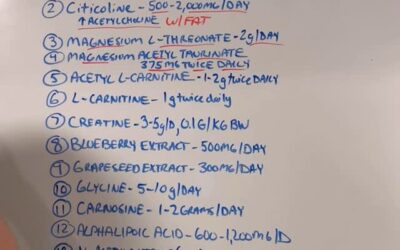 ② Citicoline - 500-2,000MG/DAY
↑ACETYLCHOLINE W/FAT
③ MAGNESIUM L-THREONATE - 2g/DAY
④ MAGNESIUM ACETYL TAURINATE
375MG TWICE DAILY
⑤ ACETYL L-CARNITINE - 1-2g twice DAILY
⑥ L-CARNITINE - 1g twice daily
⑦ CREATINE - 3-5g/D, 0.1G/KG BW
⑧ BLUEBERRY EXTRACT - 500MG/DAY
⑨ GRAPESEED EXTRACT - 300MG/DAY
⑩ GLYCINE - 5-10g/DAY
⑪ CARNOSINE - 1-2GRAMS/DAY
⑫ ALPHALIPOIC ACID - 600-1,200MG/D